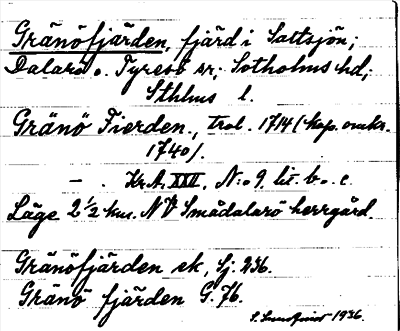 Gränöfjärden, fjärd i Saltsjön;
Dalarö o. Tyresö sr; Sotholms hd;
Sthlms l.
Gränö Fierden., trol. 1714 (kop. omkr.
1740).
— . Kr.A. XXII. N:o 9. lit. b. o. c.
Läge 2 1/2 km. NV Smådalarö herrgård.
Gränöfjärden ek, Sj. 236.
Gränö fjärden G. 76.
S. 1936.